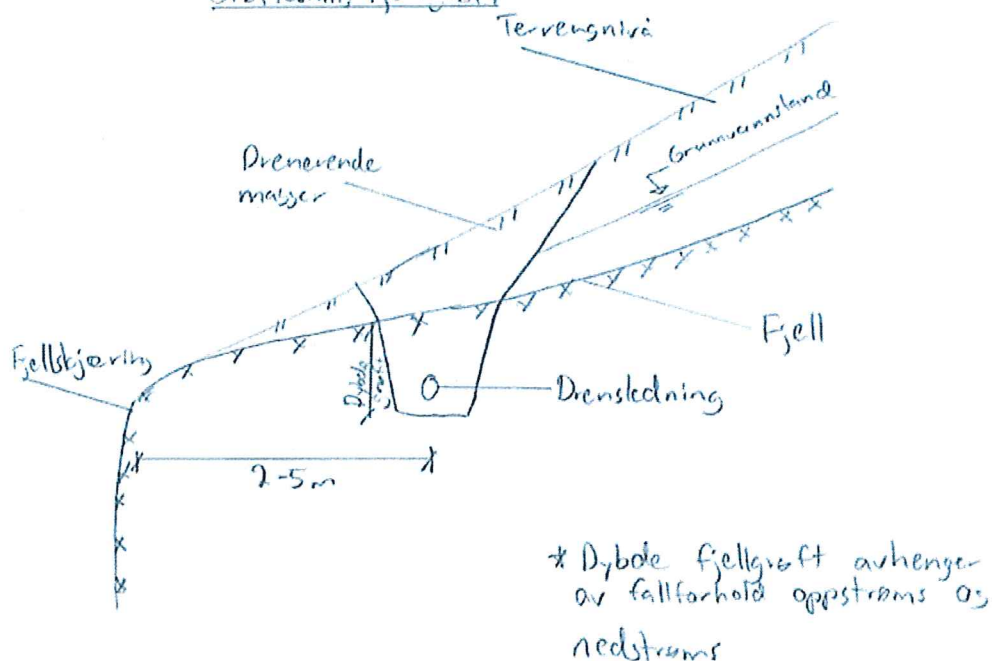 Terrengnivå
Grunnvannstand
Drenerende
masser
Fjell
Fjellskjæring
Drensledning
2-5m
* Dybde fjellgrøft avhenger
av fallforhold oppstrøms og
nedstrøms